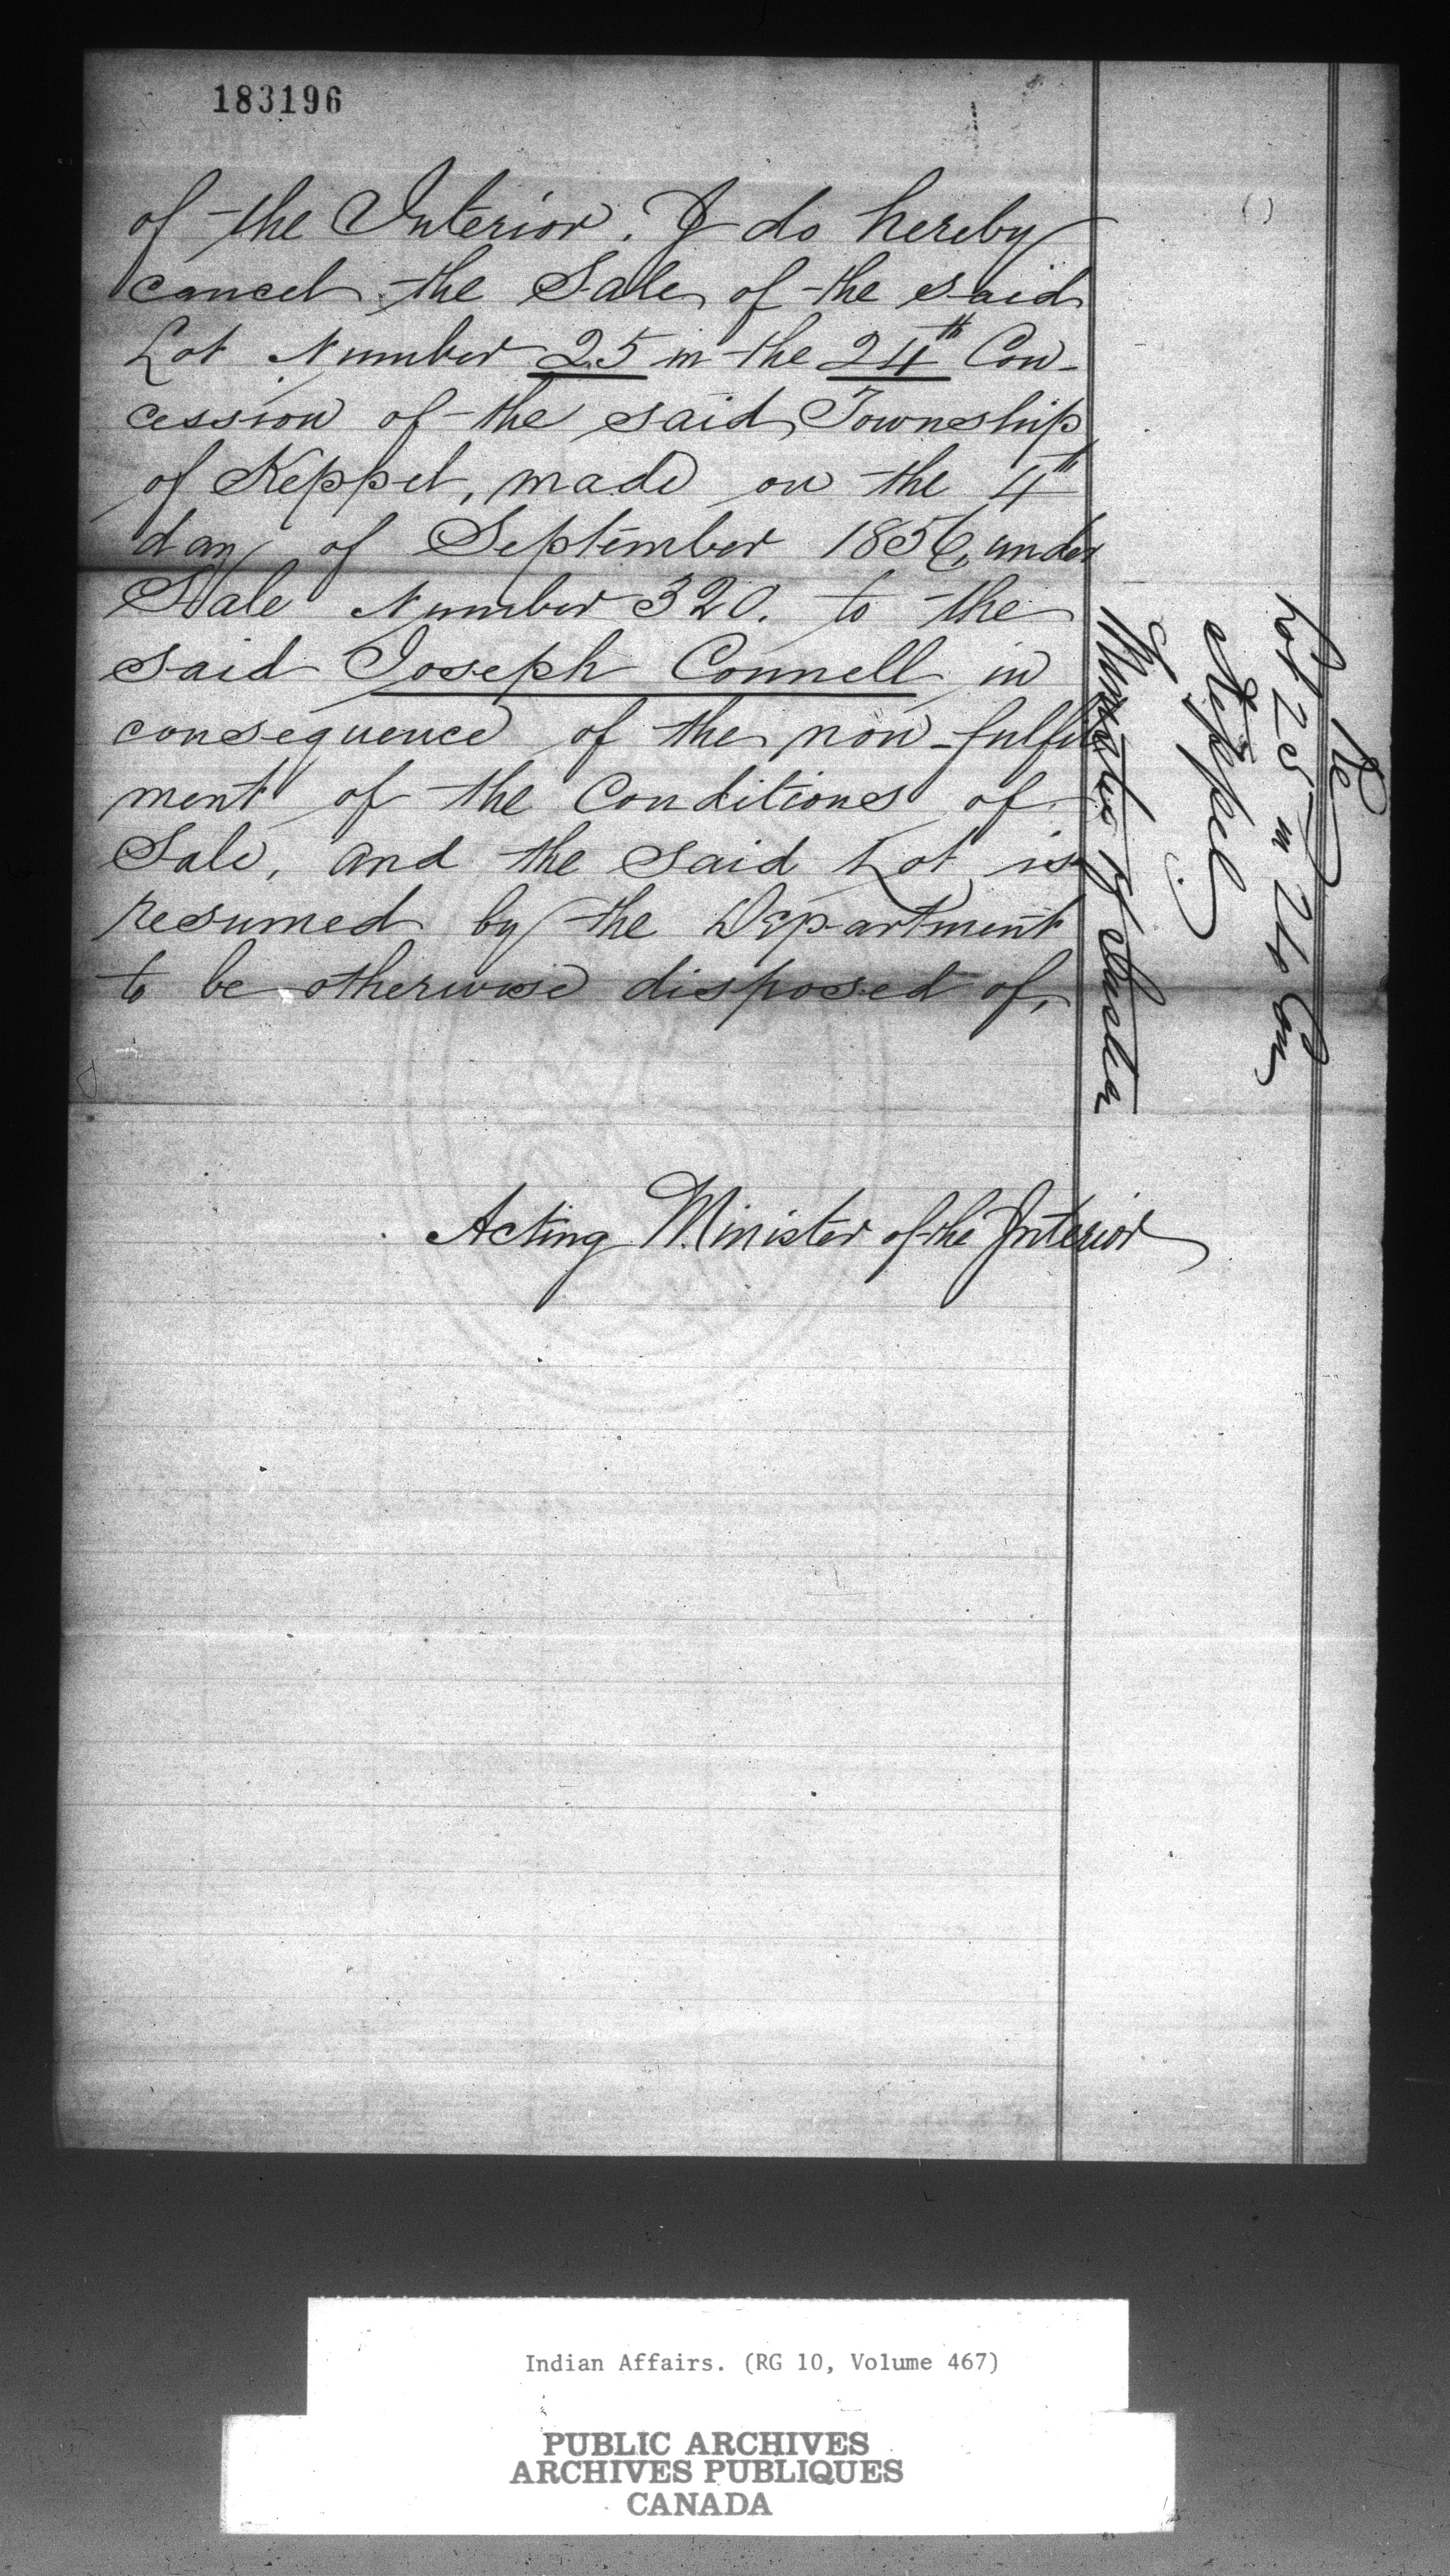 183196
of the Interior. I do hereby
cancel the Sale of the said
Lot Number 25 in the 24th Con-
cession of the said Township
of Keppel, made on the 4th
day of September 1856, under
Sale Number 320. to the
said Joseph Connell in
consequence of the non-fulfil
ment of the Conditions of
Sale, and the said Lot is
resumed by the Department
to be otherwise disposed of,
Acting Minister of the Interior
Re
Lot 25 in 24 Con
Keppel
Indian Affairs. (RG 10, Volume 467)
PUBLIC ARCHIVES
ARCHIVES PUBLIQUES
CANADA